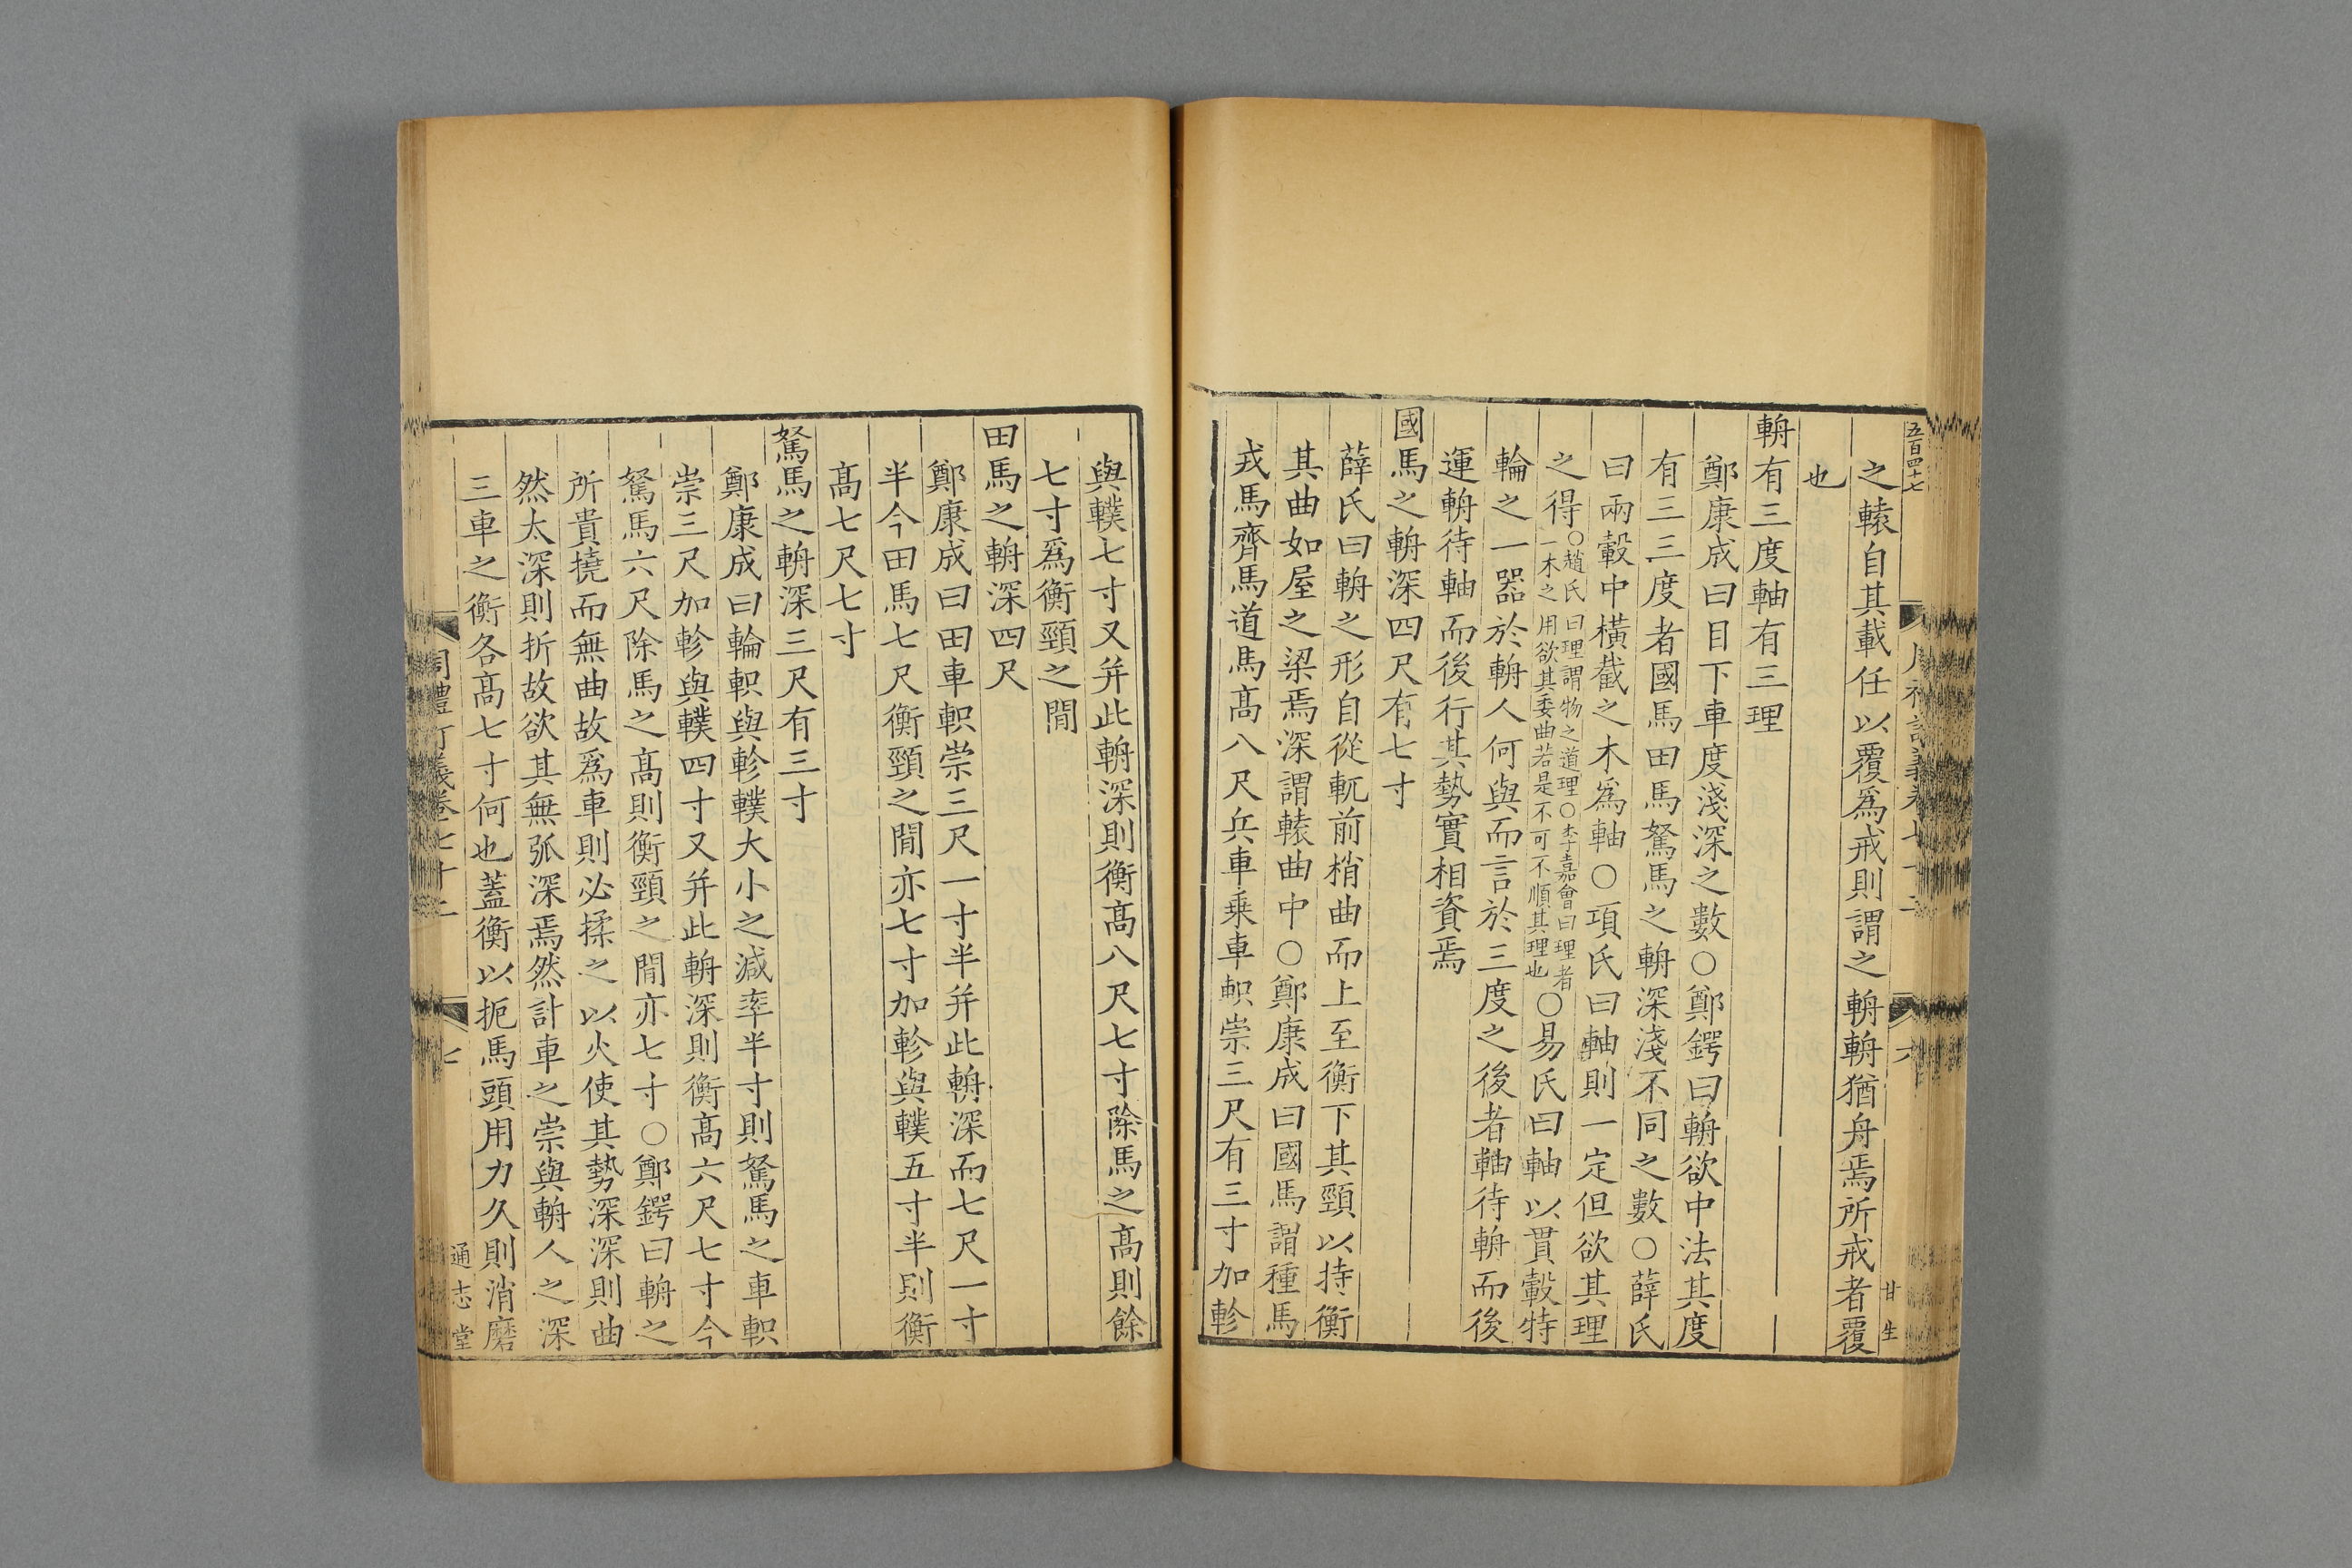 五百四十七
甘生
之轅自其載任以覆爲戒則謂之輈輈猶舟焉所戒者覆
也
輈有三度軸有三理
鄭康成曰目下車度淺深之數○鄭鍔曰輈欲中法其度
有三三度者國馬田馬駑馬之輈深淺不同之數○薛氏
曰兩轂中橫截之木爲軸○項氏曰軸則一定但欲其理
之得○趙氏曰理謂物之道理○李嘉會曰理者一木之用欲其委曲若是不可不順其理也○易氏曰軸以貫轂特
輪之一器於輈人何與而言於三度之後者軸待輈而後
運輈待軸而後行其勢實相資焉
國馬之輈深四尺有七寸
薛氏曰輈之形自從軓前梢曲而上至衡下其頸以持衡
其曲如屋之梁焉深謂轅曲中○鄭康成曰國馬謂種馬
戎馬齊馬道馬高八尺兵車乗車軹崇三尺有三寸加軫
與轐七寸又并此輈深則衡高八尺七寸除馬之高則餘
七寸爲衡頸之閒
田馬之輈深四尺
鄭康成曰田車軹崇三尺一寸半并此輈深而七尺一寸
半今田馬七尺衡頸之閒亦七寸加軫與轐五寸半則衡
高七尺七寸
駑馬之輈深三尺有三寸
鄭康成曰輪軹與軫轐大小之減率半寸則駑馬之車軹
崇三尺加軫與轐四寸又并此輈深則衡高六尺七寸今
駑馬六尺除馬之高則衡頸之閒亦七寸○鄭鍔曰輈之
所貴撓而無曲故爲車則必揉之以火使其勢深深則曲
然太深則折故欲其無弧深焉然計車之崇與輈人之深
三車之衡各高七寸何也蓋衡以扼馬頭用力久則消磨
通志堂